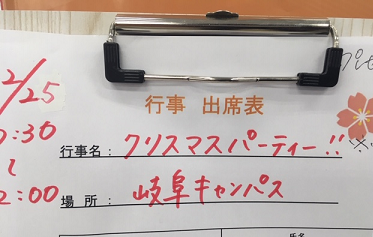 行事 出席表
2/25
:30
行事名：クリスマスパーティー!!
〜
2:00
場 所：岐阜キャンパス
氏名